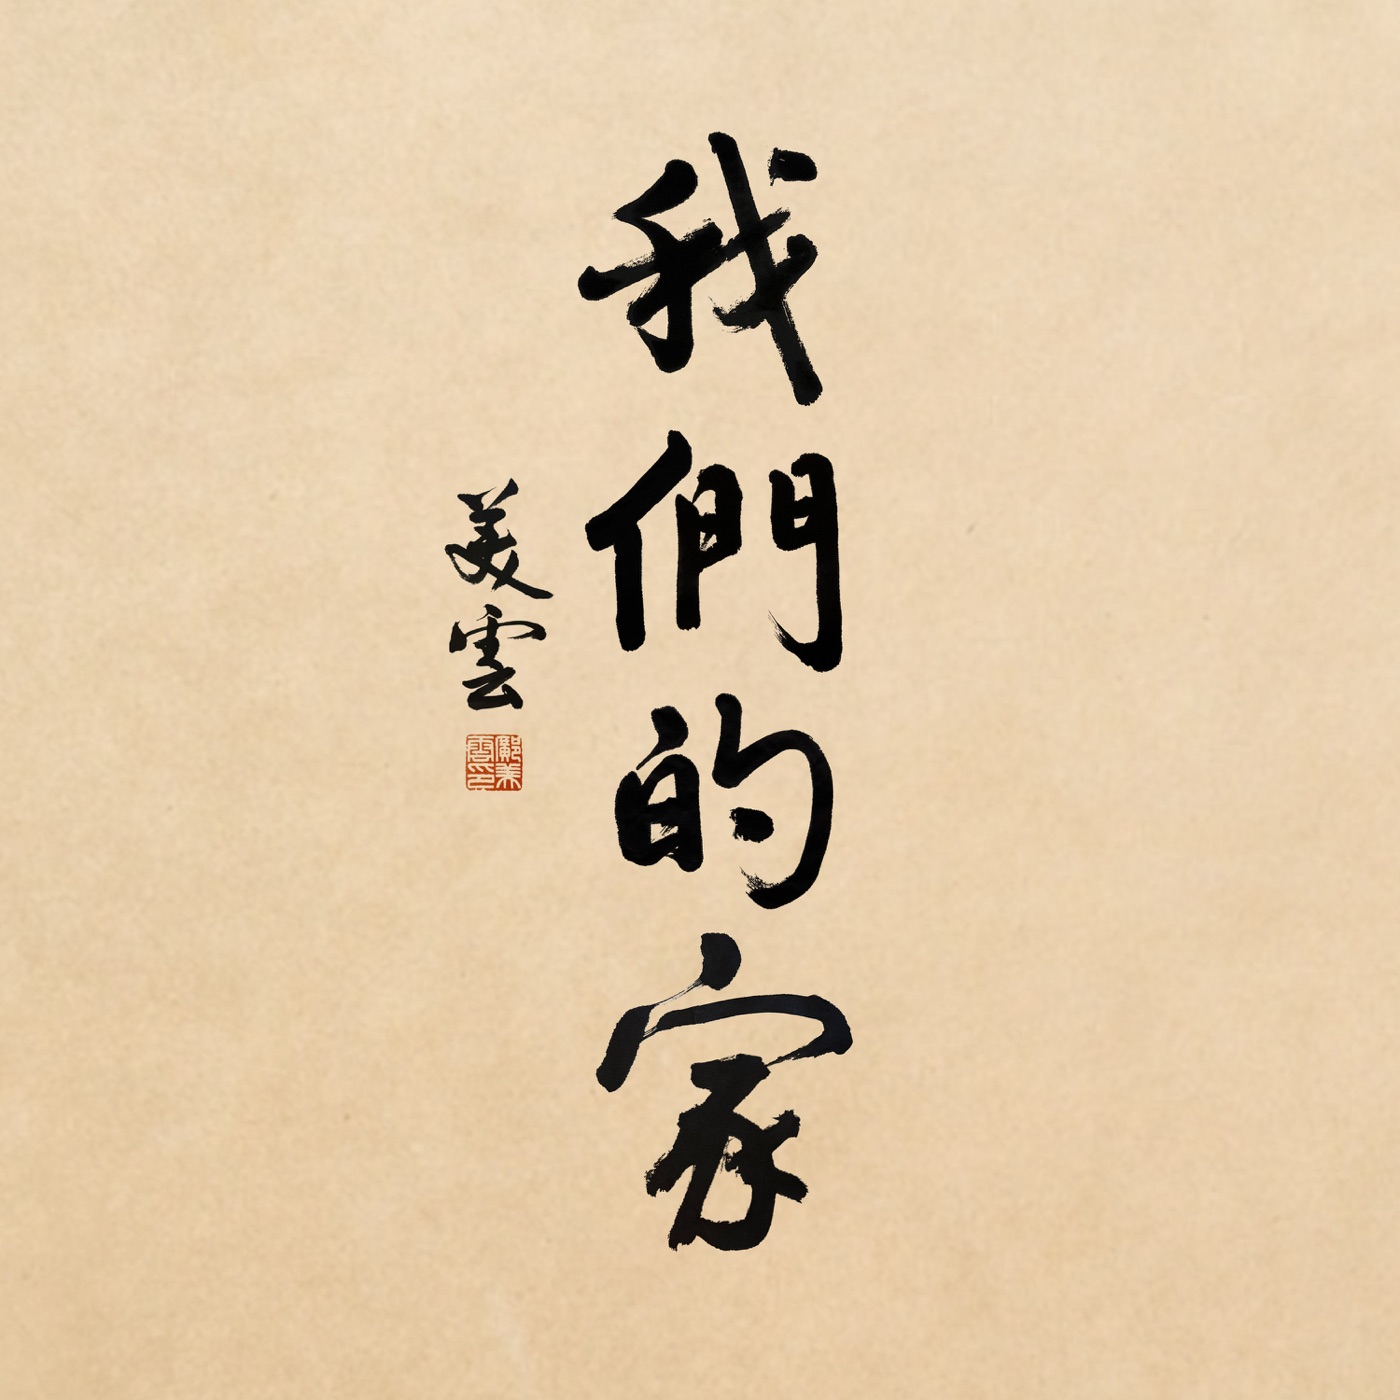 我們的家
美雲